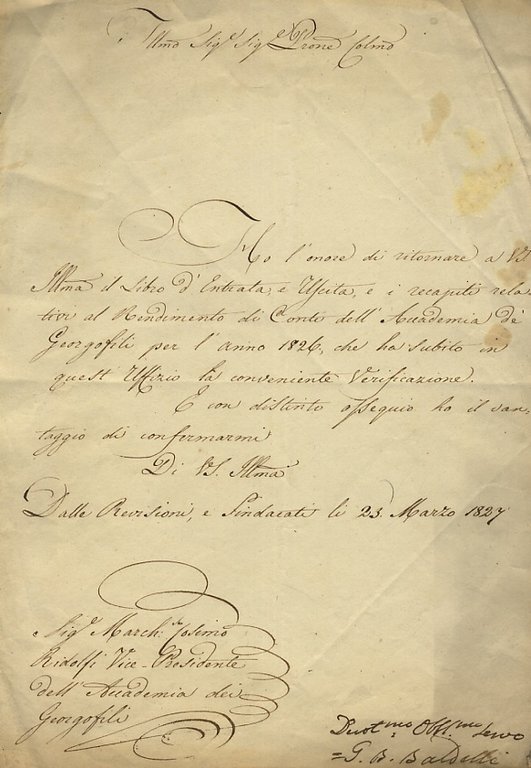 Illmo Sigr Sigre Prone Colmo
Ho l'onore di ritornare a VS
Illma il Libro d'Entrata, e Uscita, e i recapiti rela-
tivi al Rendimento di Conti dell'Accademia de'
Georgofili per l'anno 1826, che ha subito in
quest'Uffizio la conveniente Verificazione.
E con distinto ossequio ho il van-
taggio di confermarmi
Di VS. Illma
Dalle Revisioni, e Sindacati li 23. Marzo 1827
Sigr March:se Cosimo
Ridolfi Vice-Presidente
dell'Accademia dei
Georgofili
Devotmo Obblmo Servo
=G. B. Baldelli